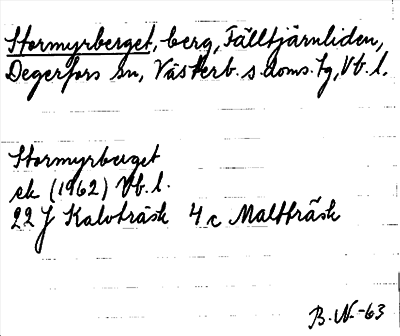 Stormyrberget, berg, Fälltjärnliden,
Degerfors sn, Västerb. s. doms. tg, Vb. l.
Stormyrberget
ek (1962) Vb. l.
22 J Kalvträsk 4 c Maltträsk
B. N.-63